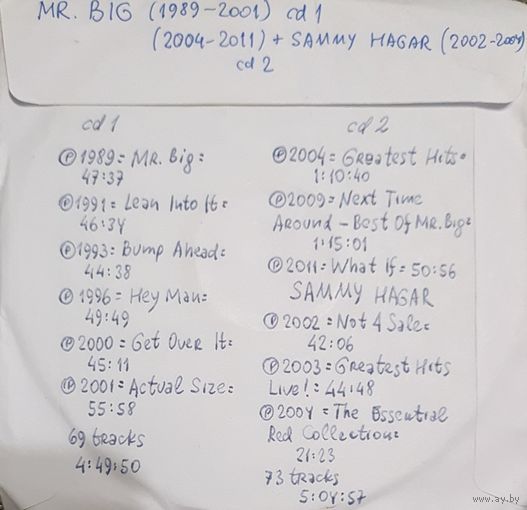 MR. BIG (1989-2001) cd 1
(2004-2011) + SAMMY HAGAR (2002-2004)
cd 2
cd 1
Ⓟ1989= MR. Big=
47:37
Ⓟ1991= Lean Into It=
46:34
Ⓟ1993= Bump Ahead=
44:38
Ⓟ1996= Hey Man=
49:49
Ⓟ2000= Get Over It=
45:11
Ⓟ2001= Actual Size=
55:58
69 tracks
4:49:50
cd 2
Ⓟ2004= Greatest Hits=
1:10:40
Ⓟ2009= Next Time
Around - Best Of MR. Big=
1:15:01
Ⓟ2011= What If= 50:56
SAMMY HAGAR
Ⓟ2002= Not 4 Sale=
42:06
Ⓟ2003= Greatest Hits
Live!= 44:48
Ⓟ2004= The Essential
Red Collection=
21:23
73 tracks
5:04:57
www.ay.by